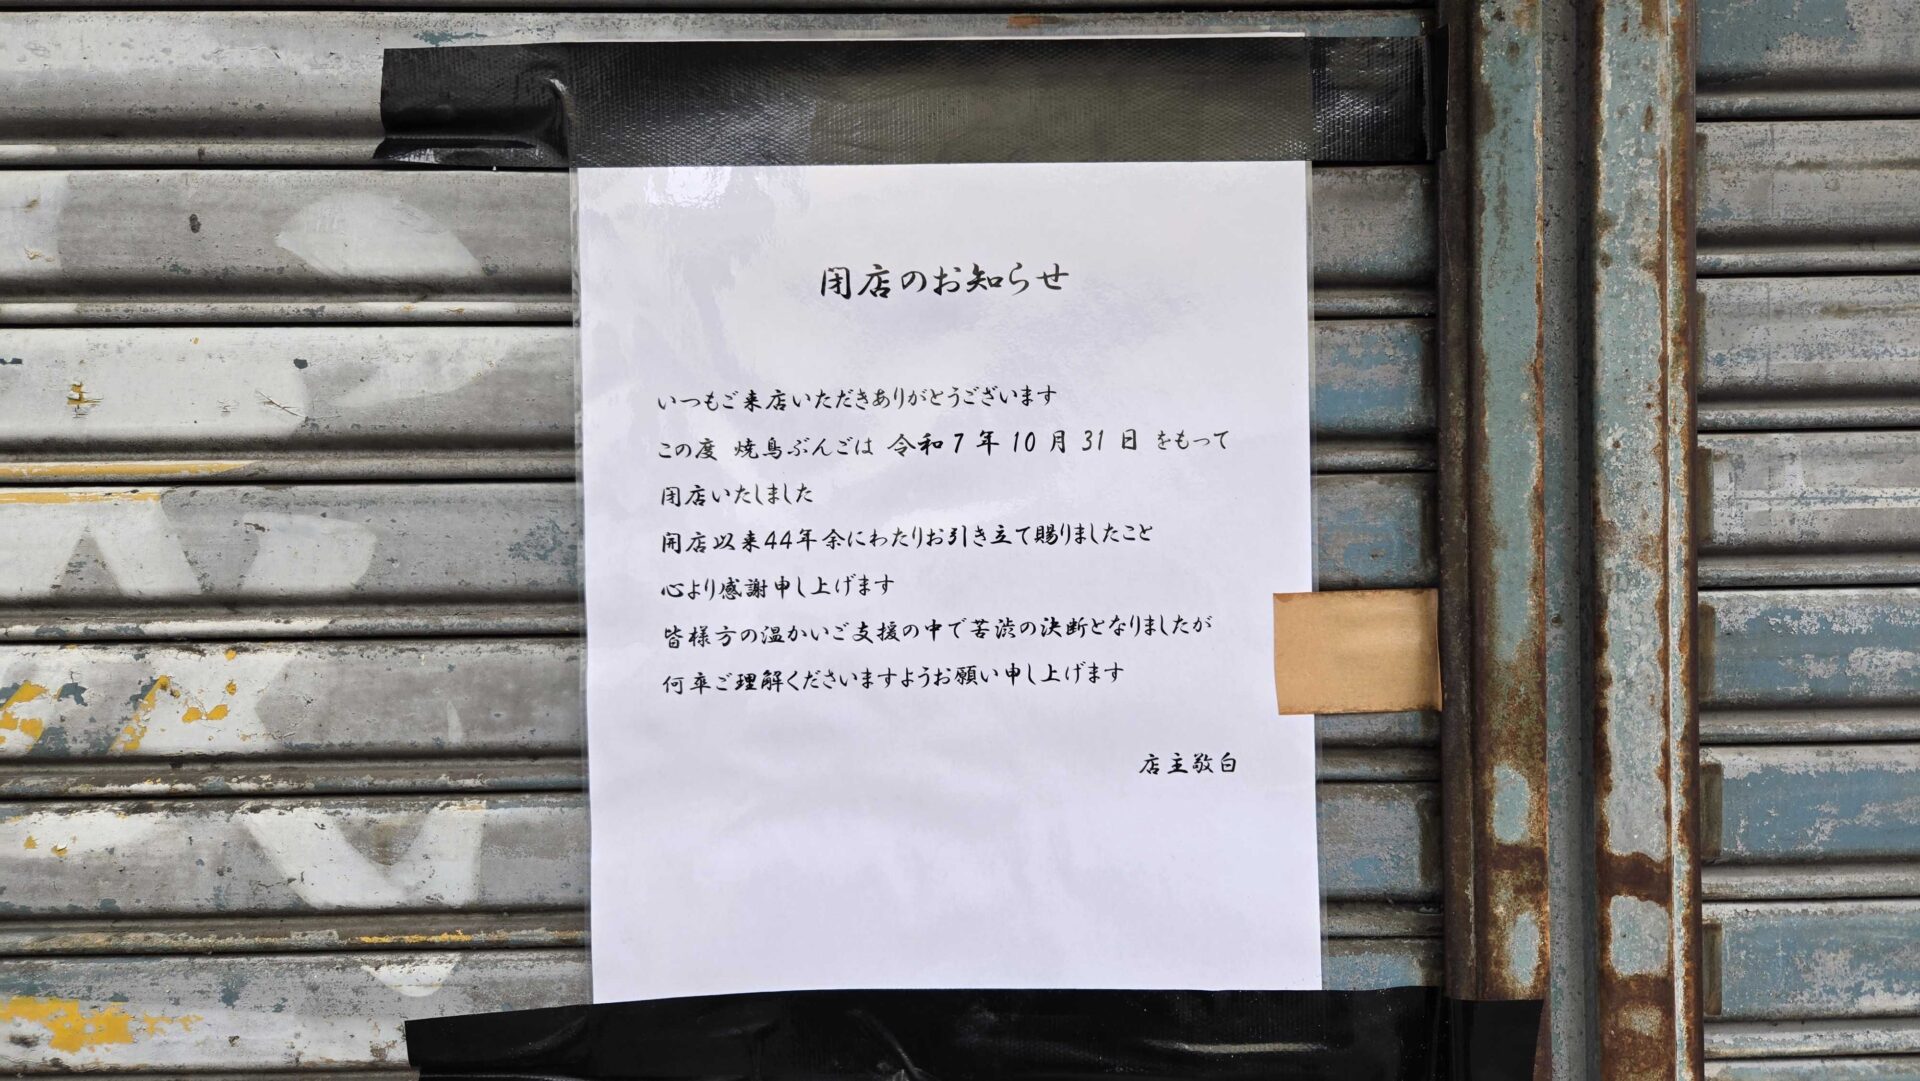 閉店のお知らせ
いつもご来店いただきありがとうございます
この度 焼鳥ぶんごは 令和7年10月31日 をもって
閉店いたしました
開店以来44年余にわたりお引き立て賜りましたこと
心より感謝申し上げます
皆様方の温かいご支援の中で苦渋の決断となりましたが
何卒ご理解くださいますようお願い申し上げます
店主敬白